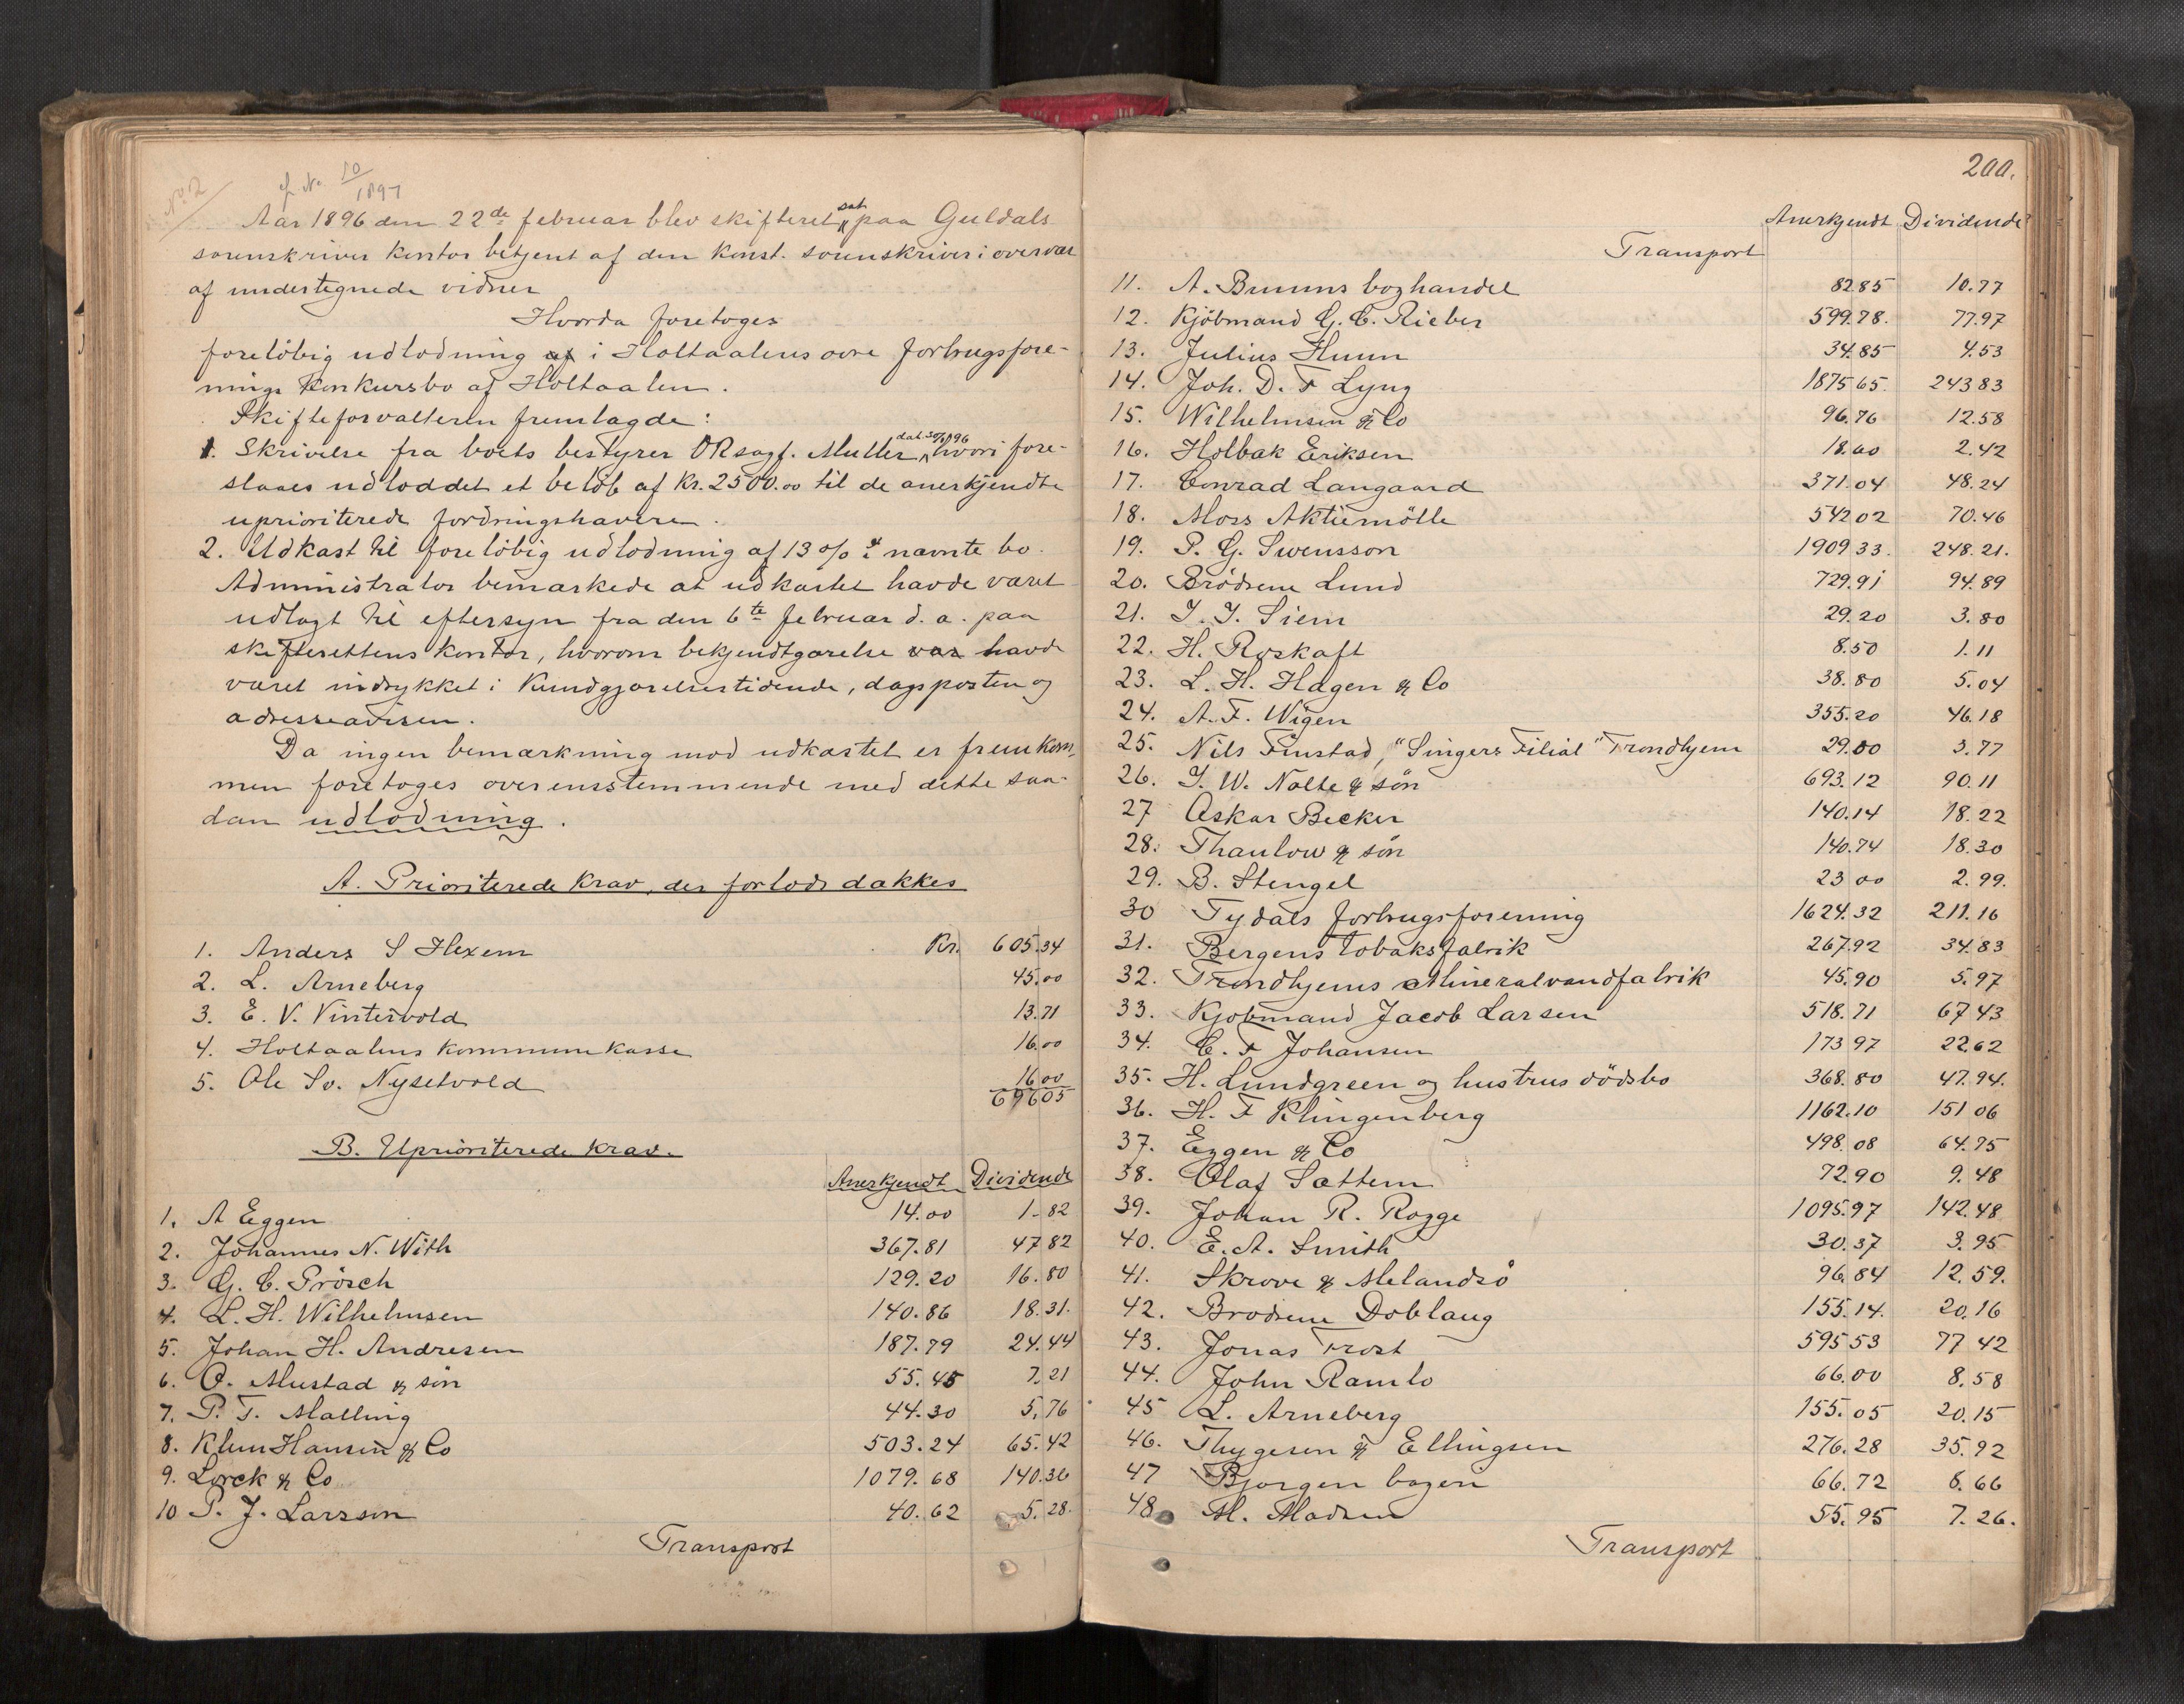 No 2
cfr. No 10/1897
Aar 1896 den 22de februar blev skifteret sat paa Guldals
sorenskriver kontor betjent af den konst. sorenskriver i overvær
af undertegnede vidner
Hvorda foretoges
foreløbig udlodning af i Holtaalens øvre forbrugsfore-
nings konkursbo af Holtaalen.
Skifteforvalteren fremlagde:
1. Skrivelse fra boets bestyrer ORsagf. Muller dat. 30/1 96 hvori fore-
slaaes udloddet et beløb af Kr. 2500.00 til de anerkjendte
uprioriterede fordringshavere.
2. Udkast til foreløbig udlodning af 13 % i nævnte bo.
Administrator bemærkede at udkastet havde været
udlagt til eftersyn fra den 6te februar d. a. paa
skifterettens kontor, hvorom bekjendtgørelse var havde
været indrykket i Kundgjørelsestidende, dagsposten og
adresseavisen.
Da ingen bemærkning mod udkastet er fremkom-
men foretoges overensstemmende med dette saa-
dan udlodning.
A. Prioriterede krav, der forlods dækkes
1. Anders S Hexem Kr. 605.34
2. L. Arneberg 45.00
3. E. V. Vintervold 13.71
4. Holtaalens kommunekasse 16.00
5. Ole Sv. Nysetvold 16.00
696 05
B. Uprioriterede krav.
Anerkjendt Dividende
1. A Eggen 14.00 1.82
2. Johannes N. With 367.81 47 82
3. G. C. Prösch 129.20 16.80
4. L. H. Wilhelmsen 140.86 18.31.
5. Johan H. Andresen 187.79 24.44
6. O. Mustad & søn 55.45 7.21
7. P. T. Malling 44.30 5.76
8. Klem Hansen & Co 503.24 65.42
9. Lorck & Co 1079.68 140.36
10 P. J. Larsson 40.62 5.28.
Transport
200.
Anerkjendt Dividende
Transport
11. A. Bruuns boghandel 82.85 10.77
12. Kjøbmand G. C. Rieber 599.78. 77.97
13. Julius Huun 34.85 4.53
14. Joh. D. F Lyng 1875 65. 243 83
15. Wilhelmsen & Co 96.76 12.58
16. Holbæk Eriksen 18.60 2.42
17. Conrad Langaard 371.04 48.24
18. Moss Aktiemølle 542 02 70.46
19. P. G. Swensson 1909 33. 248.21.
20. Brødrene Lund 729.91 94.89
21. J. J. Siem 29.20 3.80
22. H. Røskaft 8.50 1.11
23. L. H. Hagen & Co 38.80 5.04
24. A. F. Wigen 355.20 46.18
25. Nils Finstad, "Singers Filial" Trondhjem 29.00 3.77
26. J. W. Nolte & søn 693.12 90.11
27 Oskar Becker 140.14 18.22
28. Thaulow & søn 140.74 18.30
29. B. Stengel 23 00 2.99.
30 Tydals forbrugsforening 1624.32 211.16
31. Bergens Tobaksfabrik 267.92 34.83
32. Trondhjems Mineralvandfabrik 45.90 5.97
33. Kjøbmand Jacob Larsen 518.71 67 43
34. C. F Johansen 173 97 22.62
35. H. Lundgreen og hustrus dødsbo 368.80 47.94.
36. H. F Klingenberg 1162.10 151 06
37. Eggen & Co 498.08 64.75
38. Olaf Sættem 72.90 9.48
39. Johan R. Rogge 1095.97 142.48
40. E. A. Smith 30.37 3.95
41. Skrove & Melandsø 96.84 12.59.
42. Brødrene Dobloug 155.14. 20.16
43. Jonas Frost 595 53 77 42
44. John Ramlo 66.00 8.58
45 L. Arneberg 155.05 20.15
46. Thygesen & Ellingsen 276.28 35.92
47 Bjørgen bageri 66.72 8.66
48. M. Madsen 55.95 7.26.
Transport